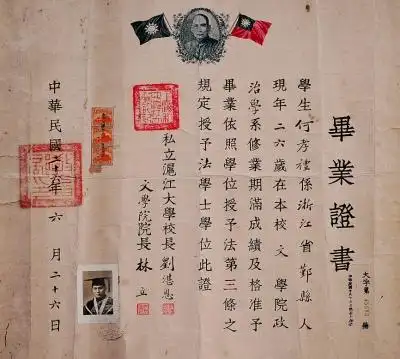 畢業證書
學生何孝禮係浙江省鄞縣人
現年二六歲在本校文學院政
治學系修業期滿成績及格准予
畢業依照學位授予法第三條之
規定授予法學士學位此證
私立滬江大學校長劉湛恩
文學院院長林立
中華民國二十五年六月二十六日